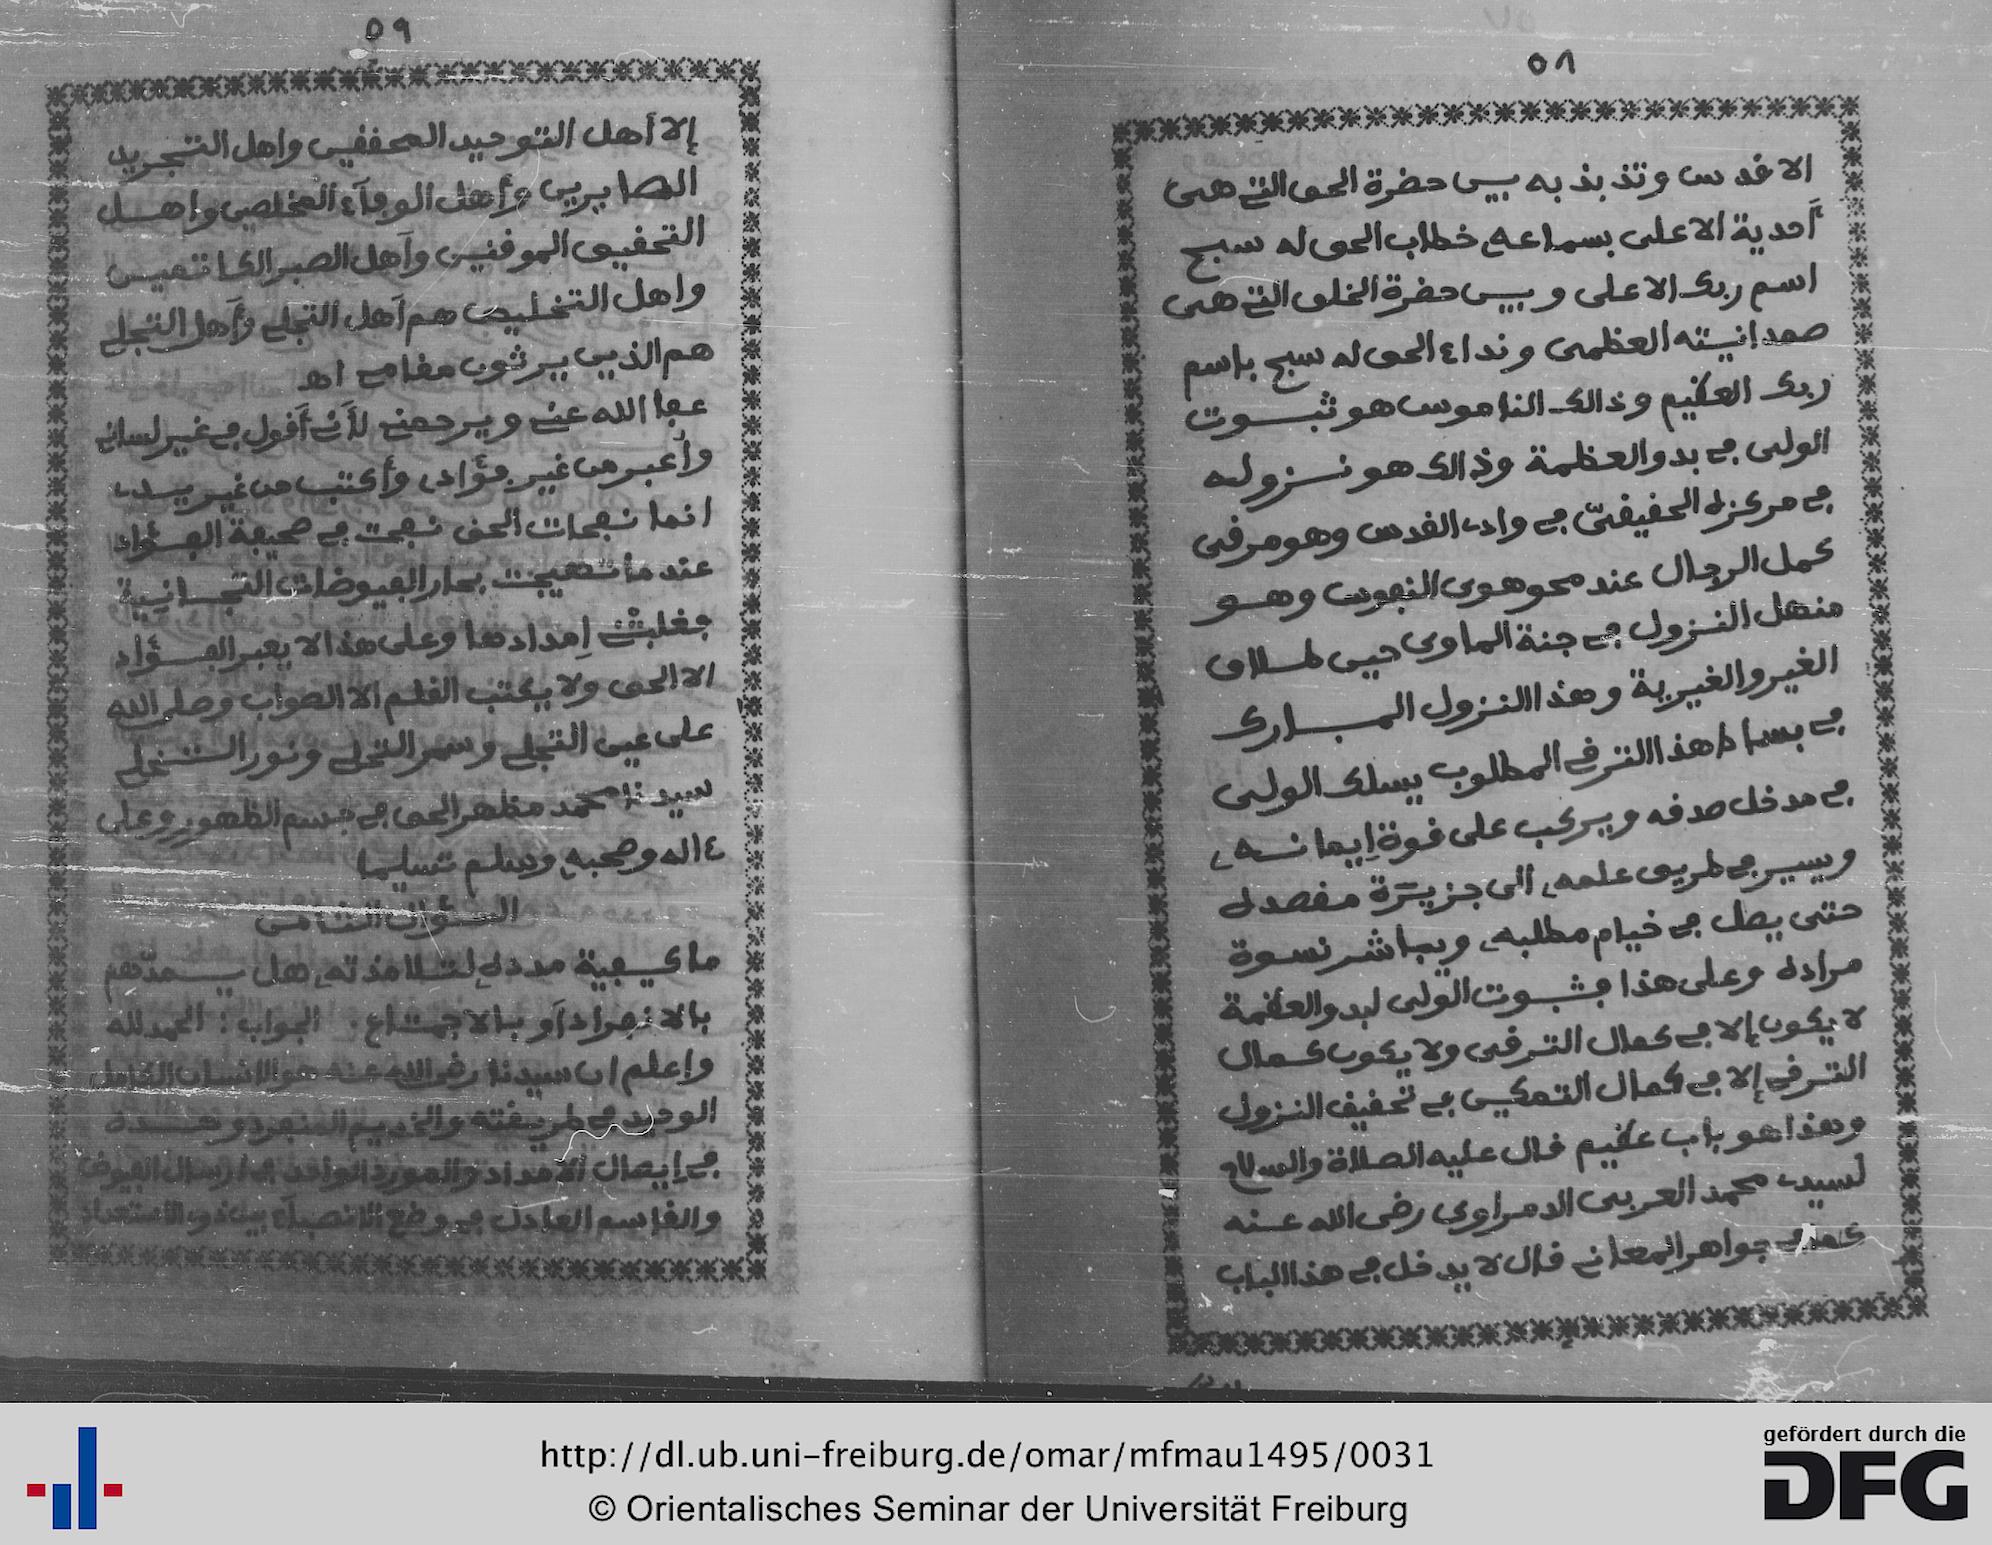 ٥٨
الاقدس وتذبذبه بين حضرة الحق التي هي
أحدية الاعلى بسماعه خطاب الحق له سبح
اسم ربك الاعلى وبين حضرة الخلق التي هي
صمدانيته العظمى ونداء الحق له سبح باسم
ربك العظيم وذالك الناموس هو ثبوت
الولى في بدو العظمة وذالك هو نزوله
في مركزه الحقيقيّ في واد القدس وهو مرقى
كمل الرجال عند محو هوى النفوس وهو
منهل النزول في جنة الماوى حين طلاق
الغير والغيرية وهذا النزول المبارك
في بساط هذا الترقي المطلوب يسلك الولى
في مدخل صدقه ويركب على قوة إيمانه
ويسير في طريق علمه الى جزيرة مقصده
حتى يصل في خيام مطلبه ويباشر نسوة
مراده وعلى هذا فثبوت الولى لبدو العظمة
لا يكون إلا في كمال الترقى ولا يكون كمال
الترقي إلا في كمال التمكين في تحقيق النزول
وهذا هو باب عظيم قال عليه الصلاة والسلام
لسيد محمد العربى الدمراوى رضى الله عنه
كما في جواهر المعاني قال لا يدخل في هذا الباب
٥٩
إلا أهل التوحيد المحققين واهل التجريد
الصابرين وأهل الوفاء المخلصين واهل
التحقيق الموقنين وأهل الصبر الكاتمين
واهل التخليص هم أهل التجلي وأهل التجلي
هم الذين يرثون مقامي اهـ
عفا الله عني ويرحمني لأني أقول في غير لساني
وأعبر من غير فؤاد وأكتب من غير يد
انما نفحات الحق نفحت في صحيفة الفؤاد
عند ما تهيجت بحار الفيوضات التجانية
فغلبتْ إمدادها وعلى هذا لا يعبر الفؤاد
الا الحق ولا يكتب القلم الا الصواب وصلى الله
على عين التجلي وسر التحلي ونور التخلي
سيدنا محمد مظهر الحق في جسم الظهور وعلى
ءاله وصحبه وسلم تسليما
السؤال الثامن
ما كيفية مدده لتلامذته هل يمدّهم
بالانفراد أو بالاجتماع. الجواب: الحمد لله
واعلم ان سيدنا رضى الله عنه هو الانسان الكامل
الوحيد في طريقته والخديم المنفرد وحده
في إيصال الامداد والمورد الواحد في ارسال الفيوض
والقاسم العادل في وضع الانصباء بين ذو الاستعداد
http://dl.ub.uni-freiburg.de/omar/mfmau1495/0031
© Orientalisches Seminar der Universität Freiburg
gefördert durch die
DFG